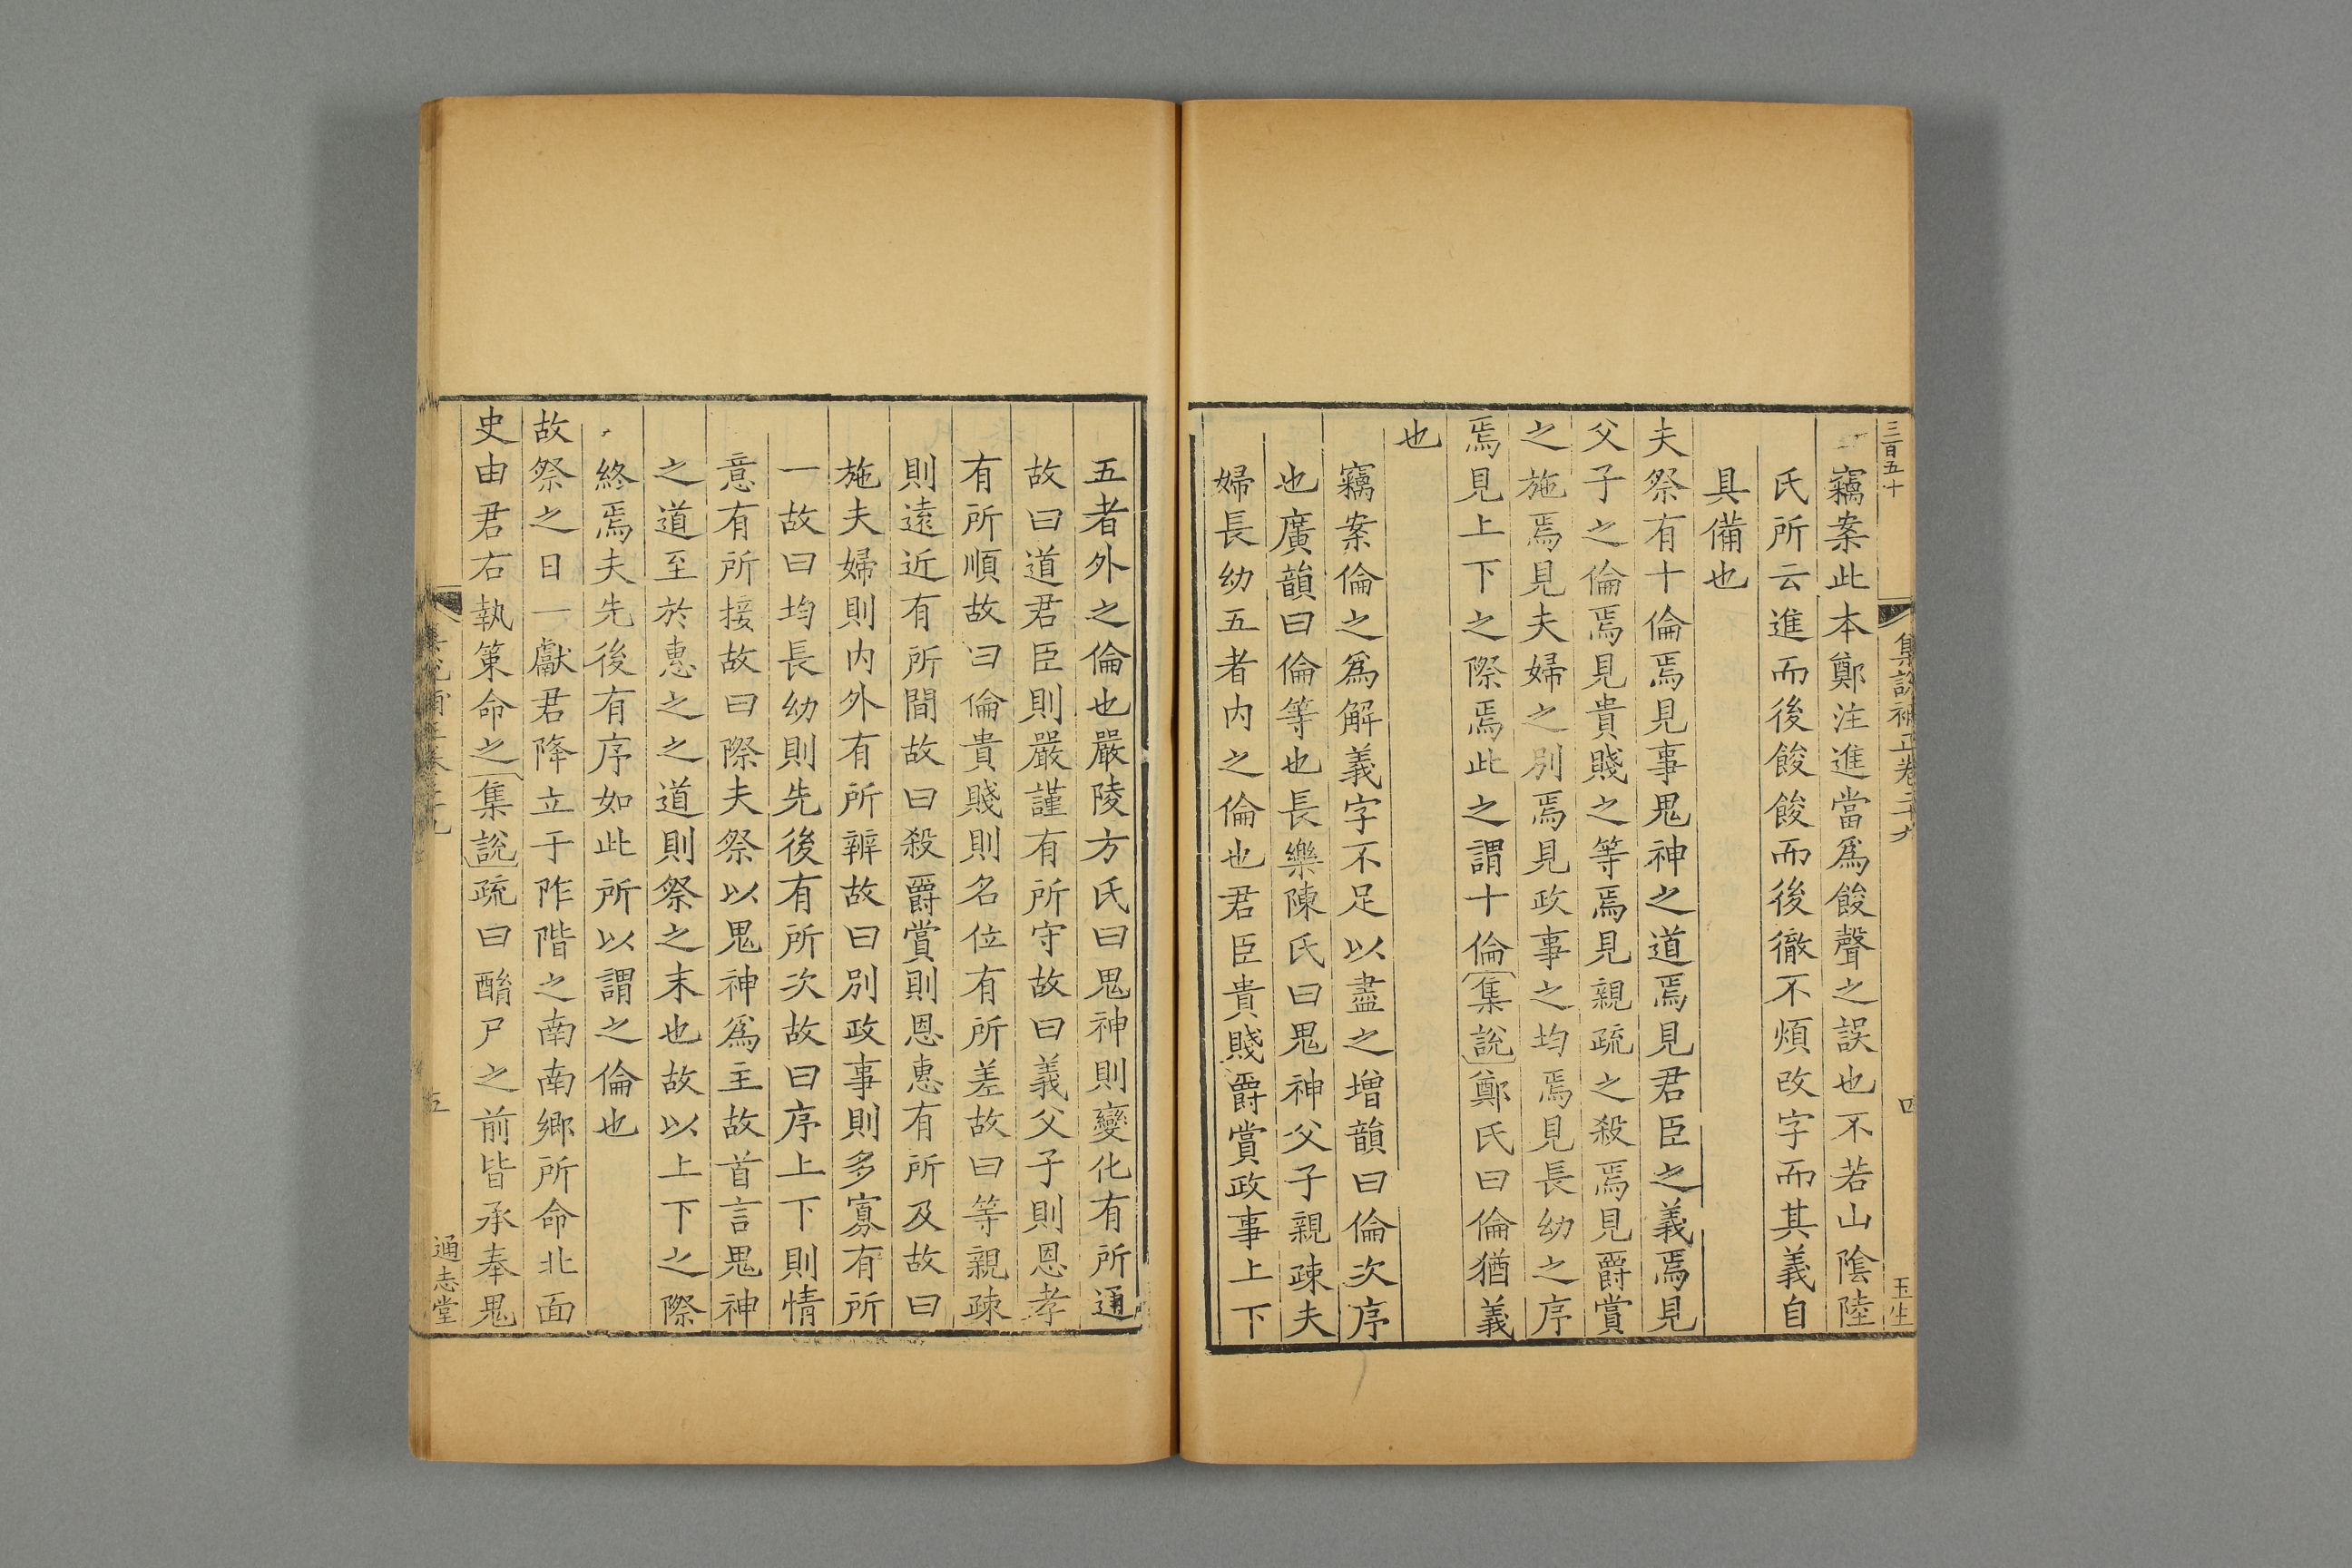 三百五十
集說補正卷三十九
四
玉生
竊案此本鄭注進當爲餕聲之誤也不若山陰陸
氏所云進而後餕餕而後徹不煩改字而其義自
具備也
夫祭有十倫焉見事鬼神之道焉見君臣之義焉見
父子之倫焉見貴賤之等焉見親疏之殺焉見爵賞
之施焉見夫婦之別焉見政事之均焉見長幼之序
焉見上下之際焉此之謂十倫集說鄭氏曰倫猶義
也
竊案倫之爲解義字不足以盡之增韻曰倫次序
也廣韻曰倫等也長樂陳氏曰鬼神父子親疎夫
婦長幼五者內之倫也君臣貴賤爵賞政事上下
五者外之倫也嚴陵方氏曰鬼神則變化有所通
故曰道君臣則嚴謹有所守故曰義父子則恩孝
有所順故曰倫貴賤則名位有所差故曰等親疎
則遠近有所間故曰殺爵賞則恩惠有所及故曰
施夫婦則內外有所辨故曰別政事則多寡有所
一故曰均長幼則先後有所次故曰序上下則情
意有所接故曰際夫祭以鬼神爲主故首言鬼神
之道至於惠之之道則祭之末也故以上下之際
終焉夫先後有序如此所以謂之倫也
故祭之日一獻君降立于阼階之南南鄉所命北面
史由君右執策命之集說疏曰酳尸之前皆承奉鬼
五
通志堂